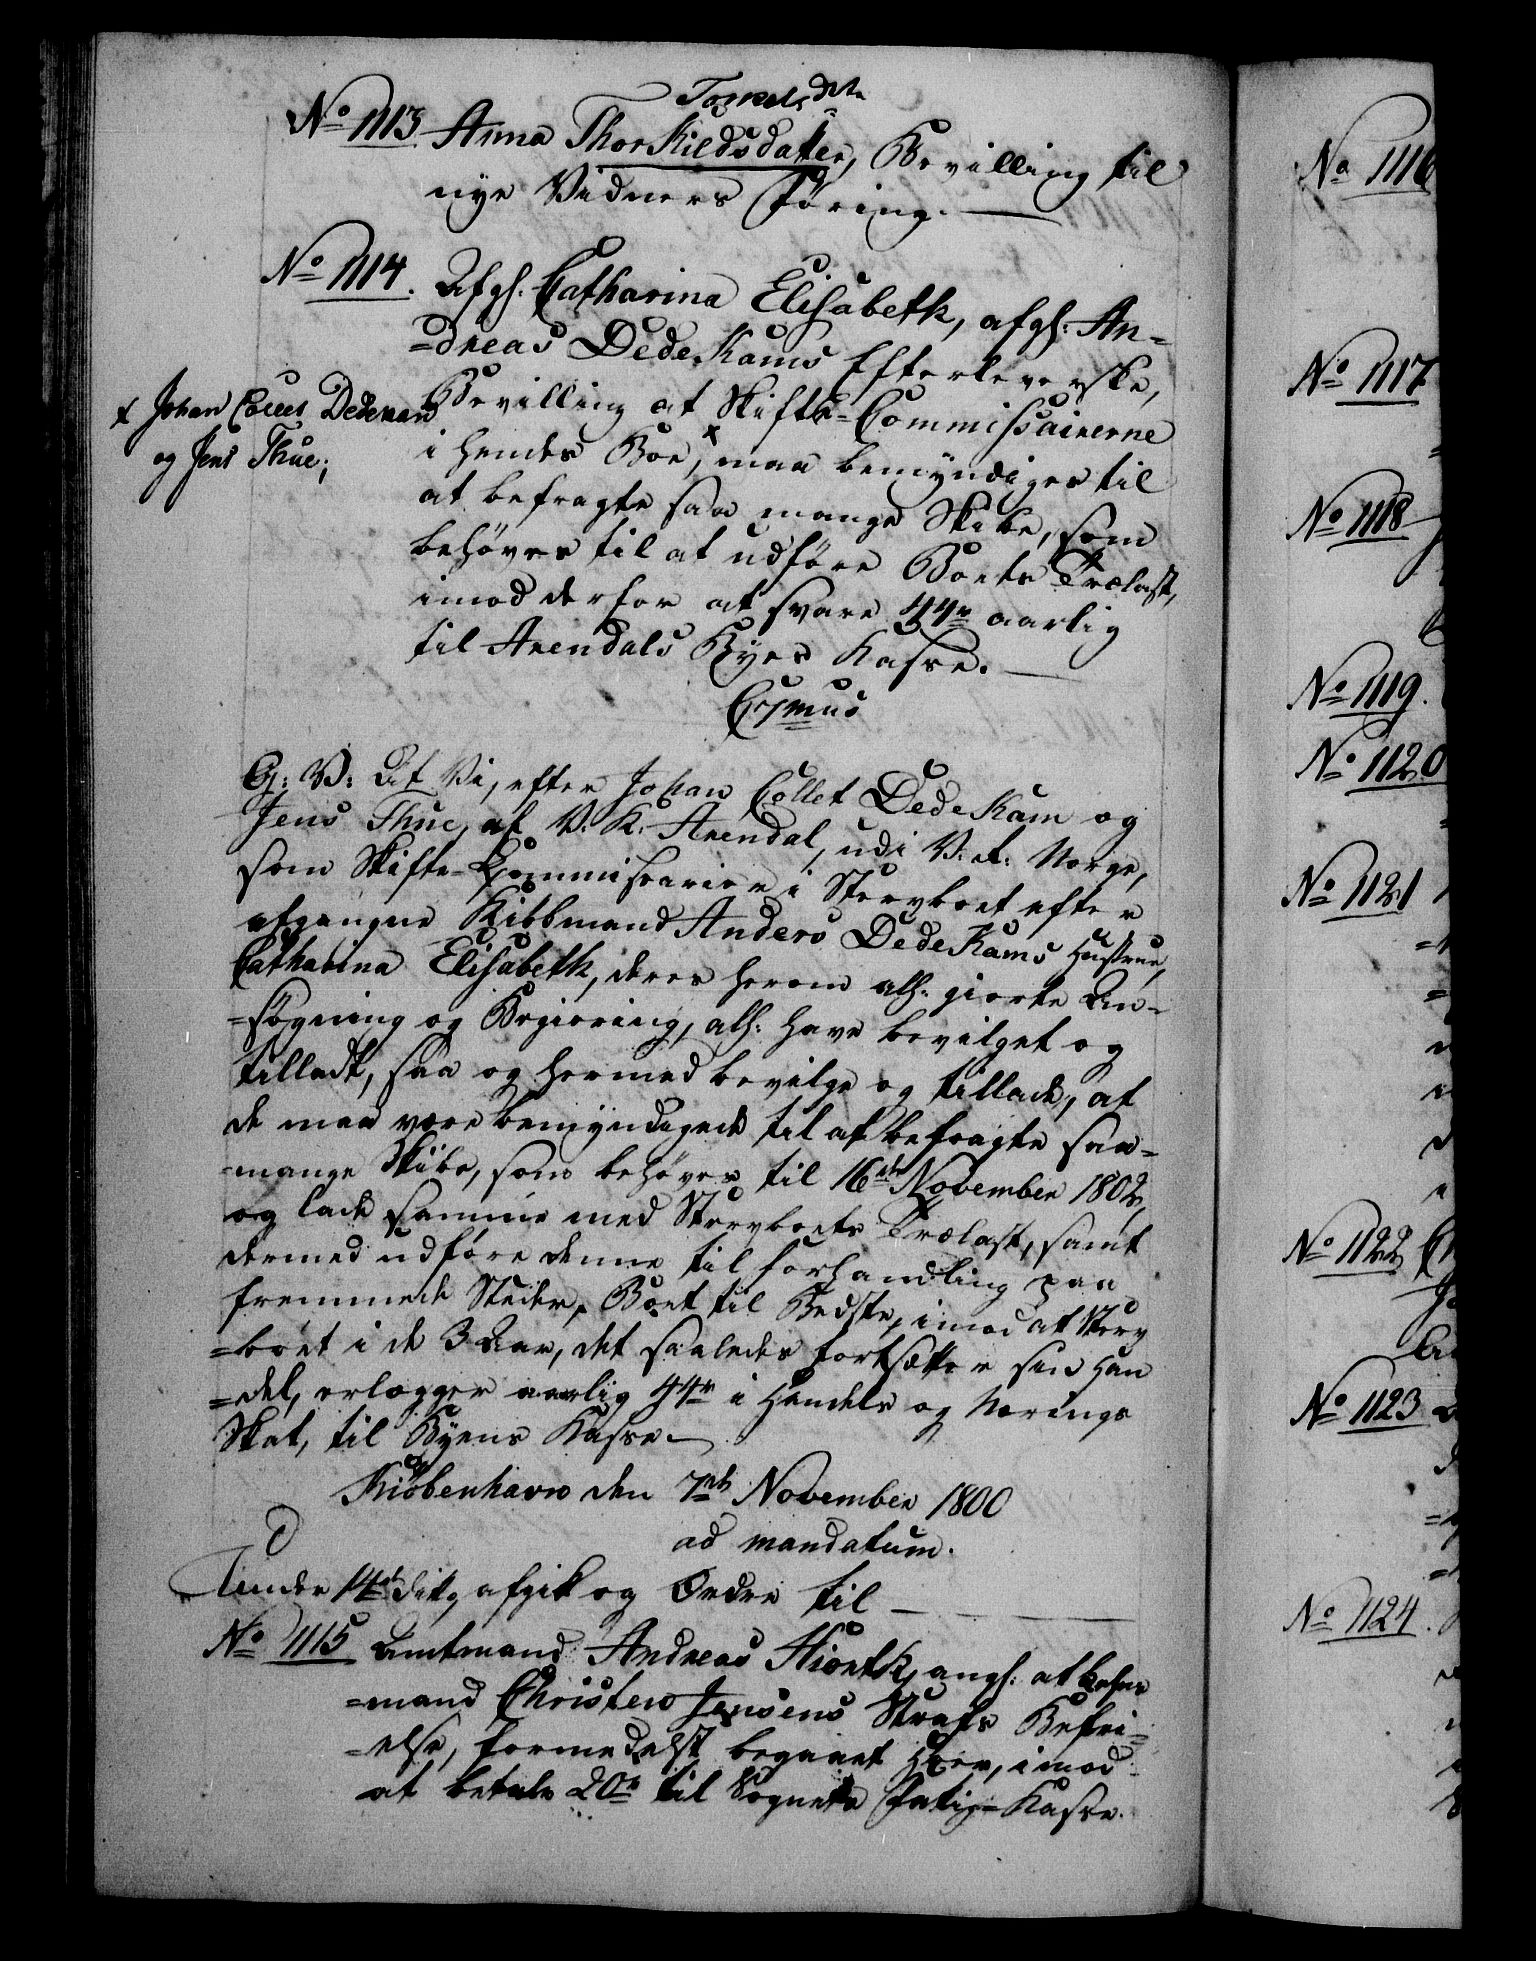 Torels dat.
No 1113 Anna Thorkildsdatter, Bevilling til
nye Vidners föring.
No 1114. Afgl. Catharina Elisabeth, afgl: An-
=dreas Dedekams Efterleverske,
Bevilling at Skifte-Commissairerne
x Johan Collet Dedekam
og Jens Thue;
i hendes Boe, x maa bemyndiges til
at befragte saa mange Skibe, som
behøves til at udföre Boets Trælast,
imod derfor at svare 44 r aarlig
til Arendals Byes Kasse.
G: V: At Vi, efter Johan Collet Dedekam og
Jens Thue, af V. K. Arendal, udi V: R: Norge,
som Skifte-Commissarier i Stervboet efter
afgangne Kiøbmand Anders Dedekams Hustrue,
Catharina Elisabeth, deres herom allr: giorte An-
=søgning og Begiering, allr: have bevilget og
tilladt, saa og hermed bevilge og tillade, at
de maa være bemyndigede til at befragte saa-
=mange Skibe, som behøves til 16de November 1802,
og lade samme med Stervboets Trælast, samt
dermed udföre denne til forhandling paa
fremmede Steder, Boet til Bedste, imod at Sterv
=boet i de 3 Aar, det saaledes fortsætter sin Han
=del, erlægger aarlig 44 r i Handels og Nærings
Skat, til Byens Kasse.
Kiöbenhavn den 7de November 1800
ad mandatum.
Under 14de dito, afgik og Ordre til
No 1115 Amtmand Andreas Hiorth, angl: at
=mand Christen Jensens Strafs Befri-
=else, formedelst begaaet Hoer, imod
at betale 20 r til Sognets Fatig-Kasse.
No 1116
No 1117
No 1118
No 1119.
No 1120
No 1121
No 1122
No 1123
No 1124.